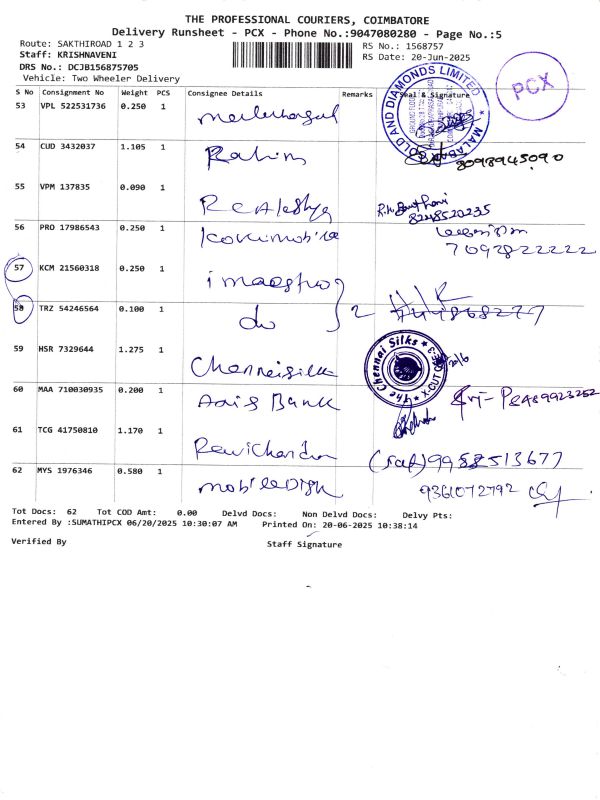 THE PROFESSIONAL COURIERS, COIMBATORE
Delivery Runsheet - PCX - Phone No.:9047080280 - Page No.:5
Route: SAKTHIROAD 1 2 3
Staff: KRISHNAVENI
DRS No.: DCJB156875705
Vehicle: Two Wheeler Delivery
RS No.: 1568757
RS Date: 20-Jun-2025
PCX
S No Consignment No Weight PCS Consignee Details Remarks Seal & Signature
53 VPL 522531736 0.250 1
GOLD AND DIAMONDS LIMITED * MALABAR
54 CUD 3432037 1.105 1 Rahim
8098945090
55 VPM 137835 0.090 1
8248520235
56 PRO 17986543 0.250 1
7092822222
57 KCM 21560318 0.250 1 imaestro
58 TRZ 54246564 0.100 1 do } 2
59 HSR 7329644 1.275 1 Chennaisilk
The Chennai Silks *
60 MAA 710030935 0.200 1 Bank
61 TCG 41750810 1.170 1 Ravichandran
62 MYS 1976346 0.580 1
9361072792
Tot Docs: 62 Tot COD Amt: 0.00 Delvd Docs: Non Delvd Docs: Delvy Pts:
Entered By :SUMATHIPCX 06/20/2025 10:30:07 AM Printed On: 20-06-2025 10:38:14
Verified By Staff Signature